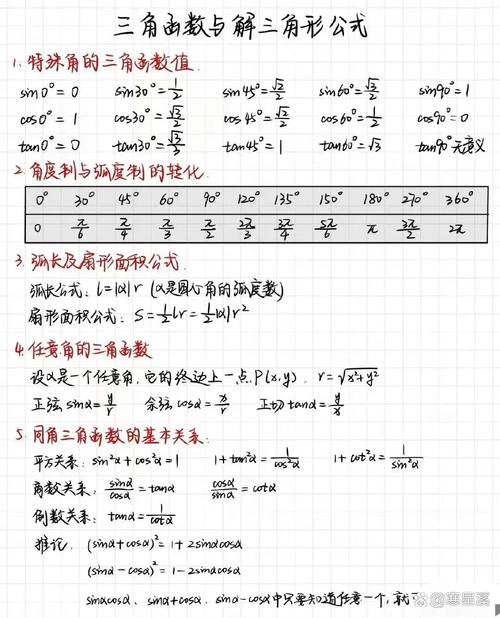 三角函数与解三角形公式
1. 特殊角的三角函数值
sin0°=0 sin30°=1/2 sin45°=√2/2 sin60°=√3/2 sin90°=1
cos0°=1 cos30°=√3/2 cos45°=√2/2 cos60°=1/2 cos90°=0
tan0°=0 tan30°=√3/3 tan45°=1 tan60°=√3 tan90°无意义
2. 角度制与弧度制的转化
0° 30° 45° 60° 90° 120° 135° 150° 180° 270° 360°
0 π/6 π/4 π/3 π/2 2π/3 3π/4 5π/6 π 3π/2 2π
3. 弧长及扇形面积公式
弧长公式: l=|α|r (α是圆心角的弧度数)
扇形面积公式: S=1/2lr=1/2|α|r²
4. 任意角的三角函数
设α是一个任意角,它的终边上一点P(x,y), r=√x²+y²
正弦sinα=y/r 余弦cosα=x/r 正切tanα=y/x
5. 同角三角函数的基本关系
平方关系: sin²α+cos²α=1 1+tan²α=1/cos²α 1+cot²α=1/sin²α
商数关系: sinα/cosα=tanα cosα/sinα=cotα
倒数关系: tanα=1/cotα
推论: (sinα+cosα)²=1+2sinαcosα
(sinα-cosα)²=1-2sinαcosα
sinαcosα、sinα+cosα、sinα-cosα中只要知道任意一个,就
@寒星落